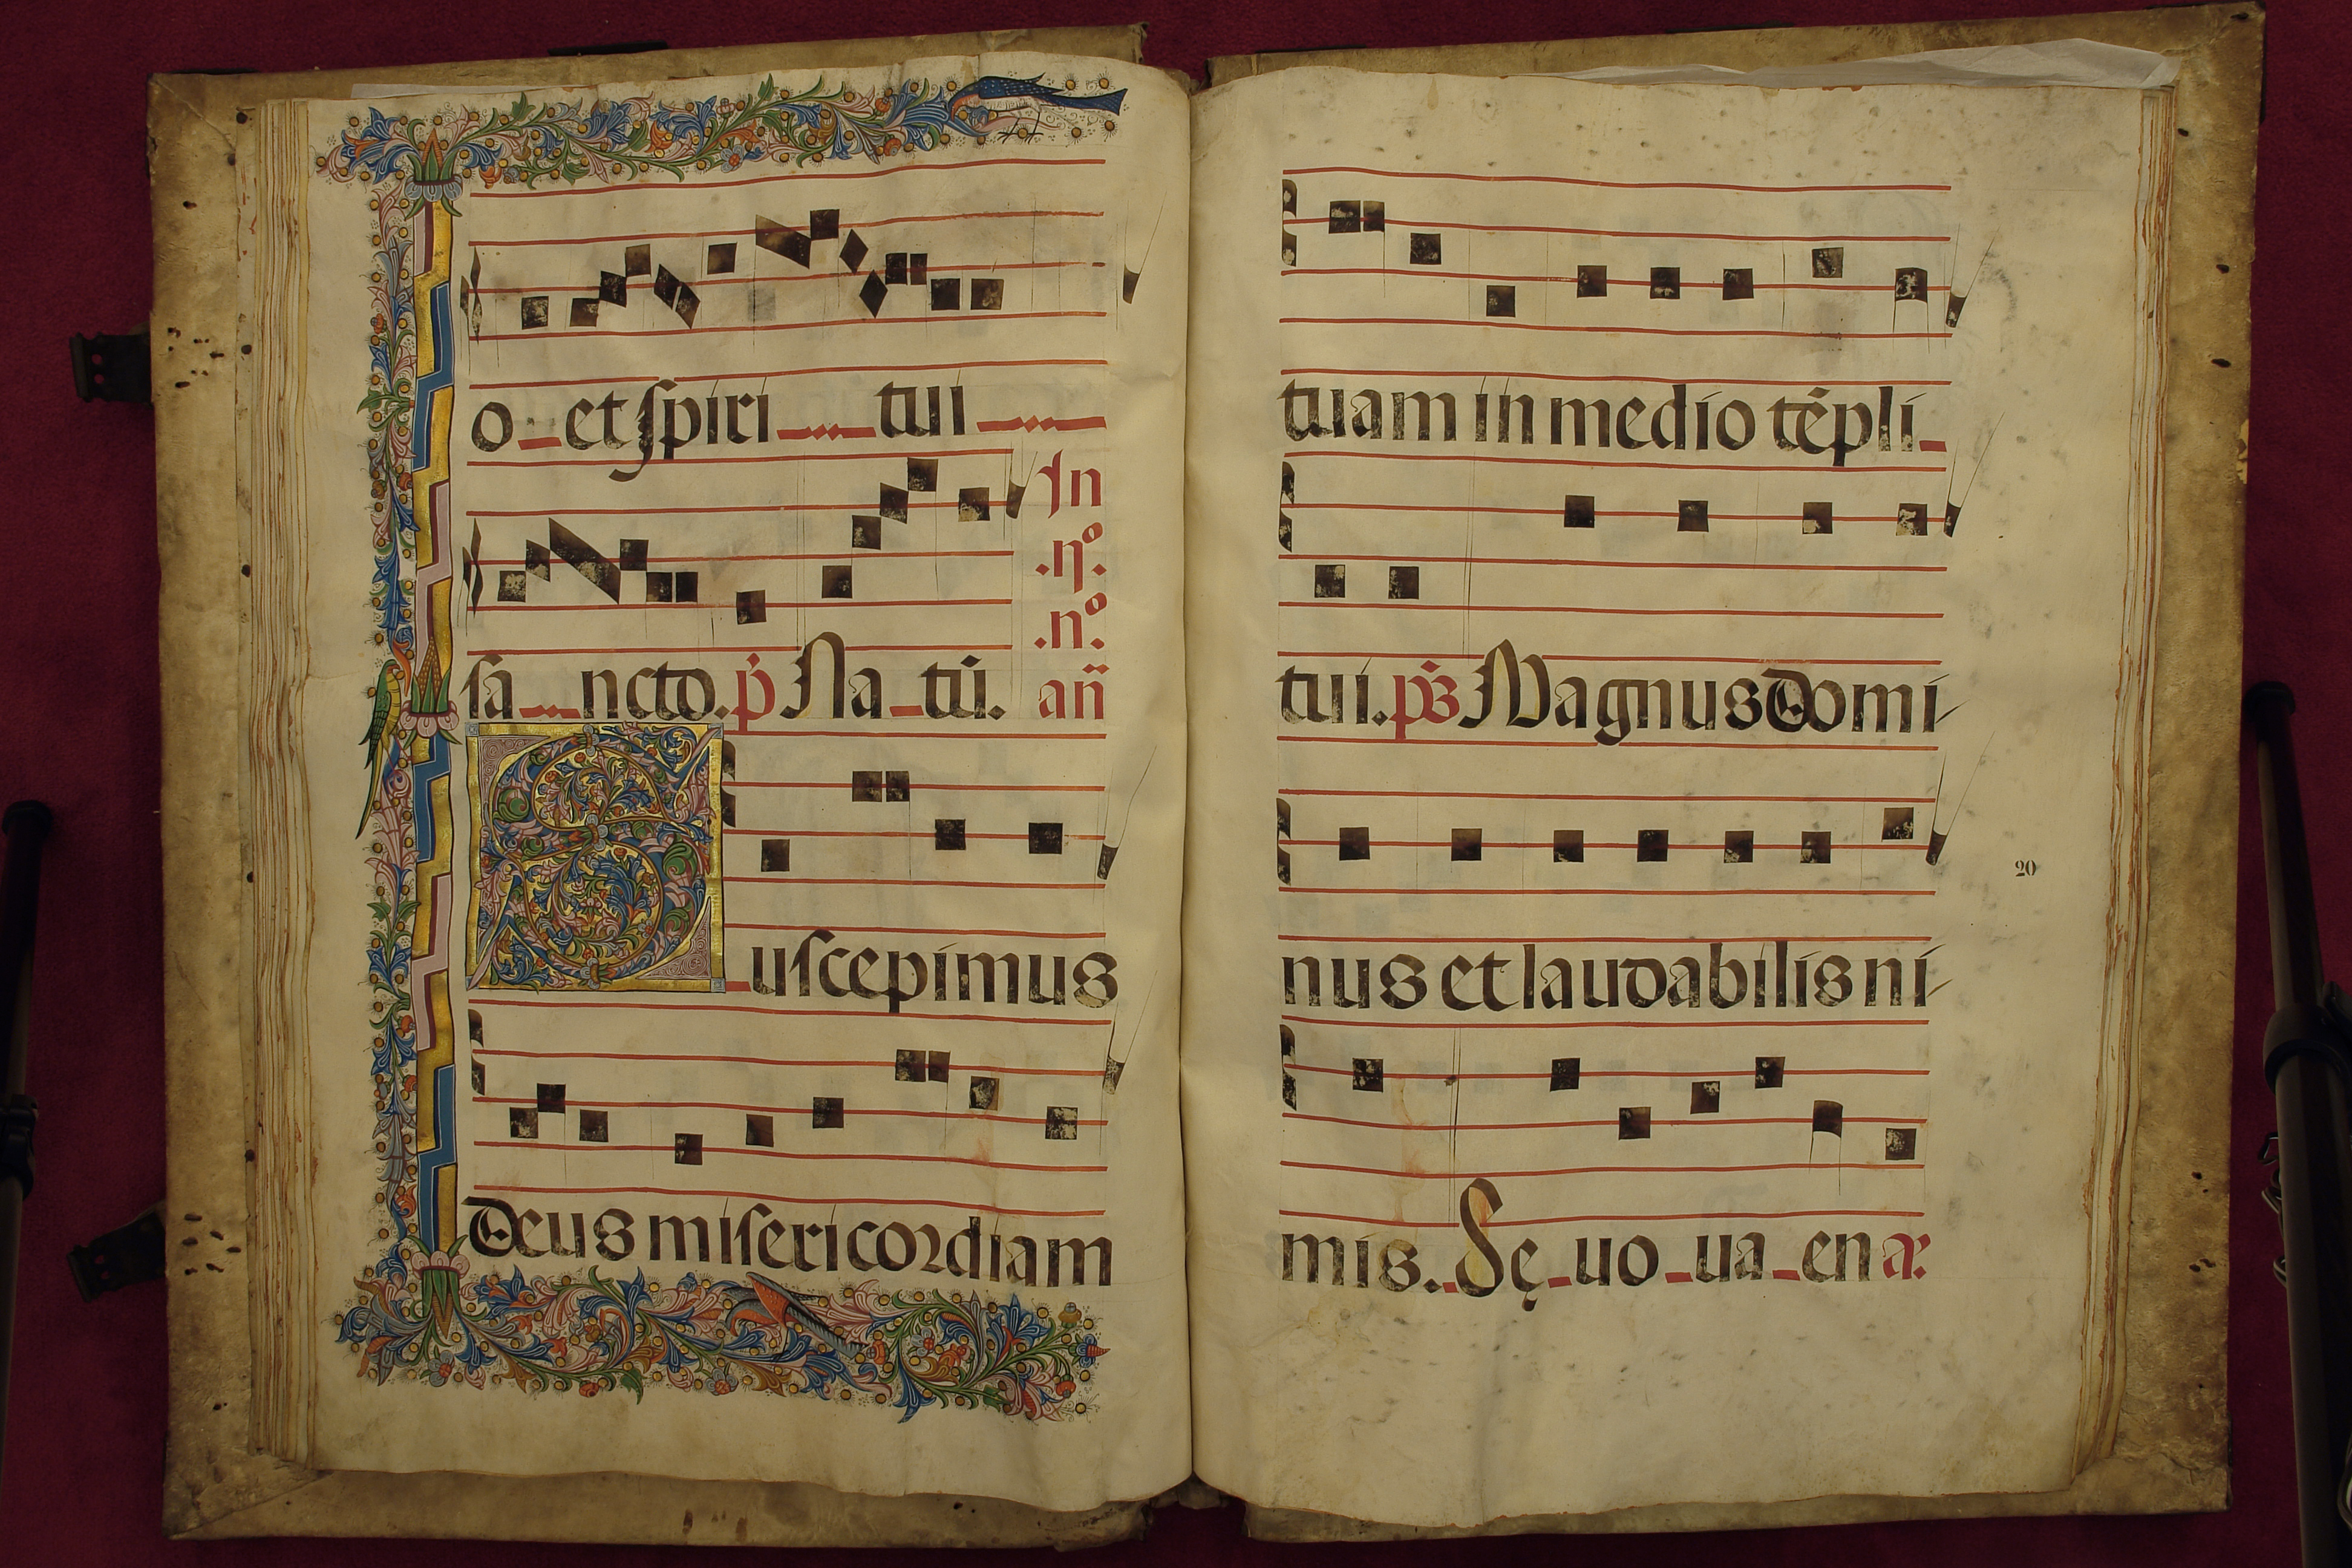 o et spiri tui
In
.ijº.
.nº.
sa ncto. p̄ Na tū. an̄
Suscepimus
Deus misericordiam
tuam in medio tēpli
tui. ps̄ Magnus Domi
nus et laudabilis ni
20
mis. Sę uo ua en ar